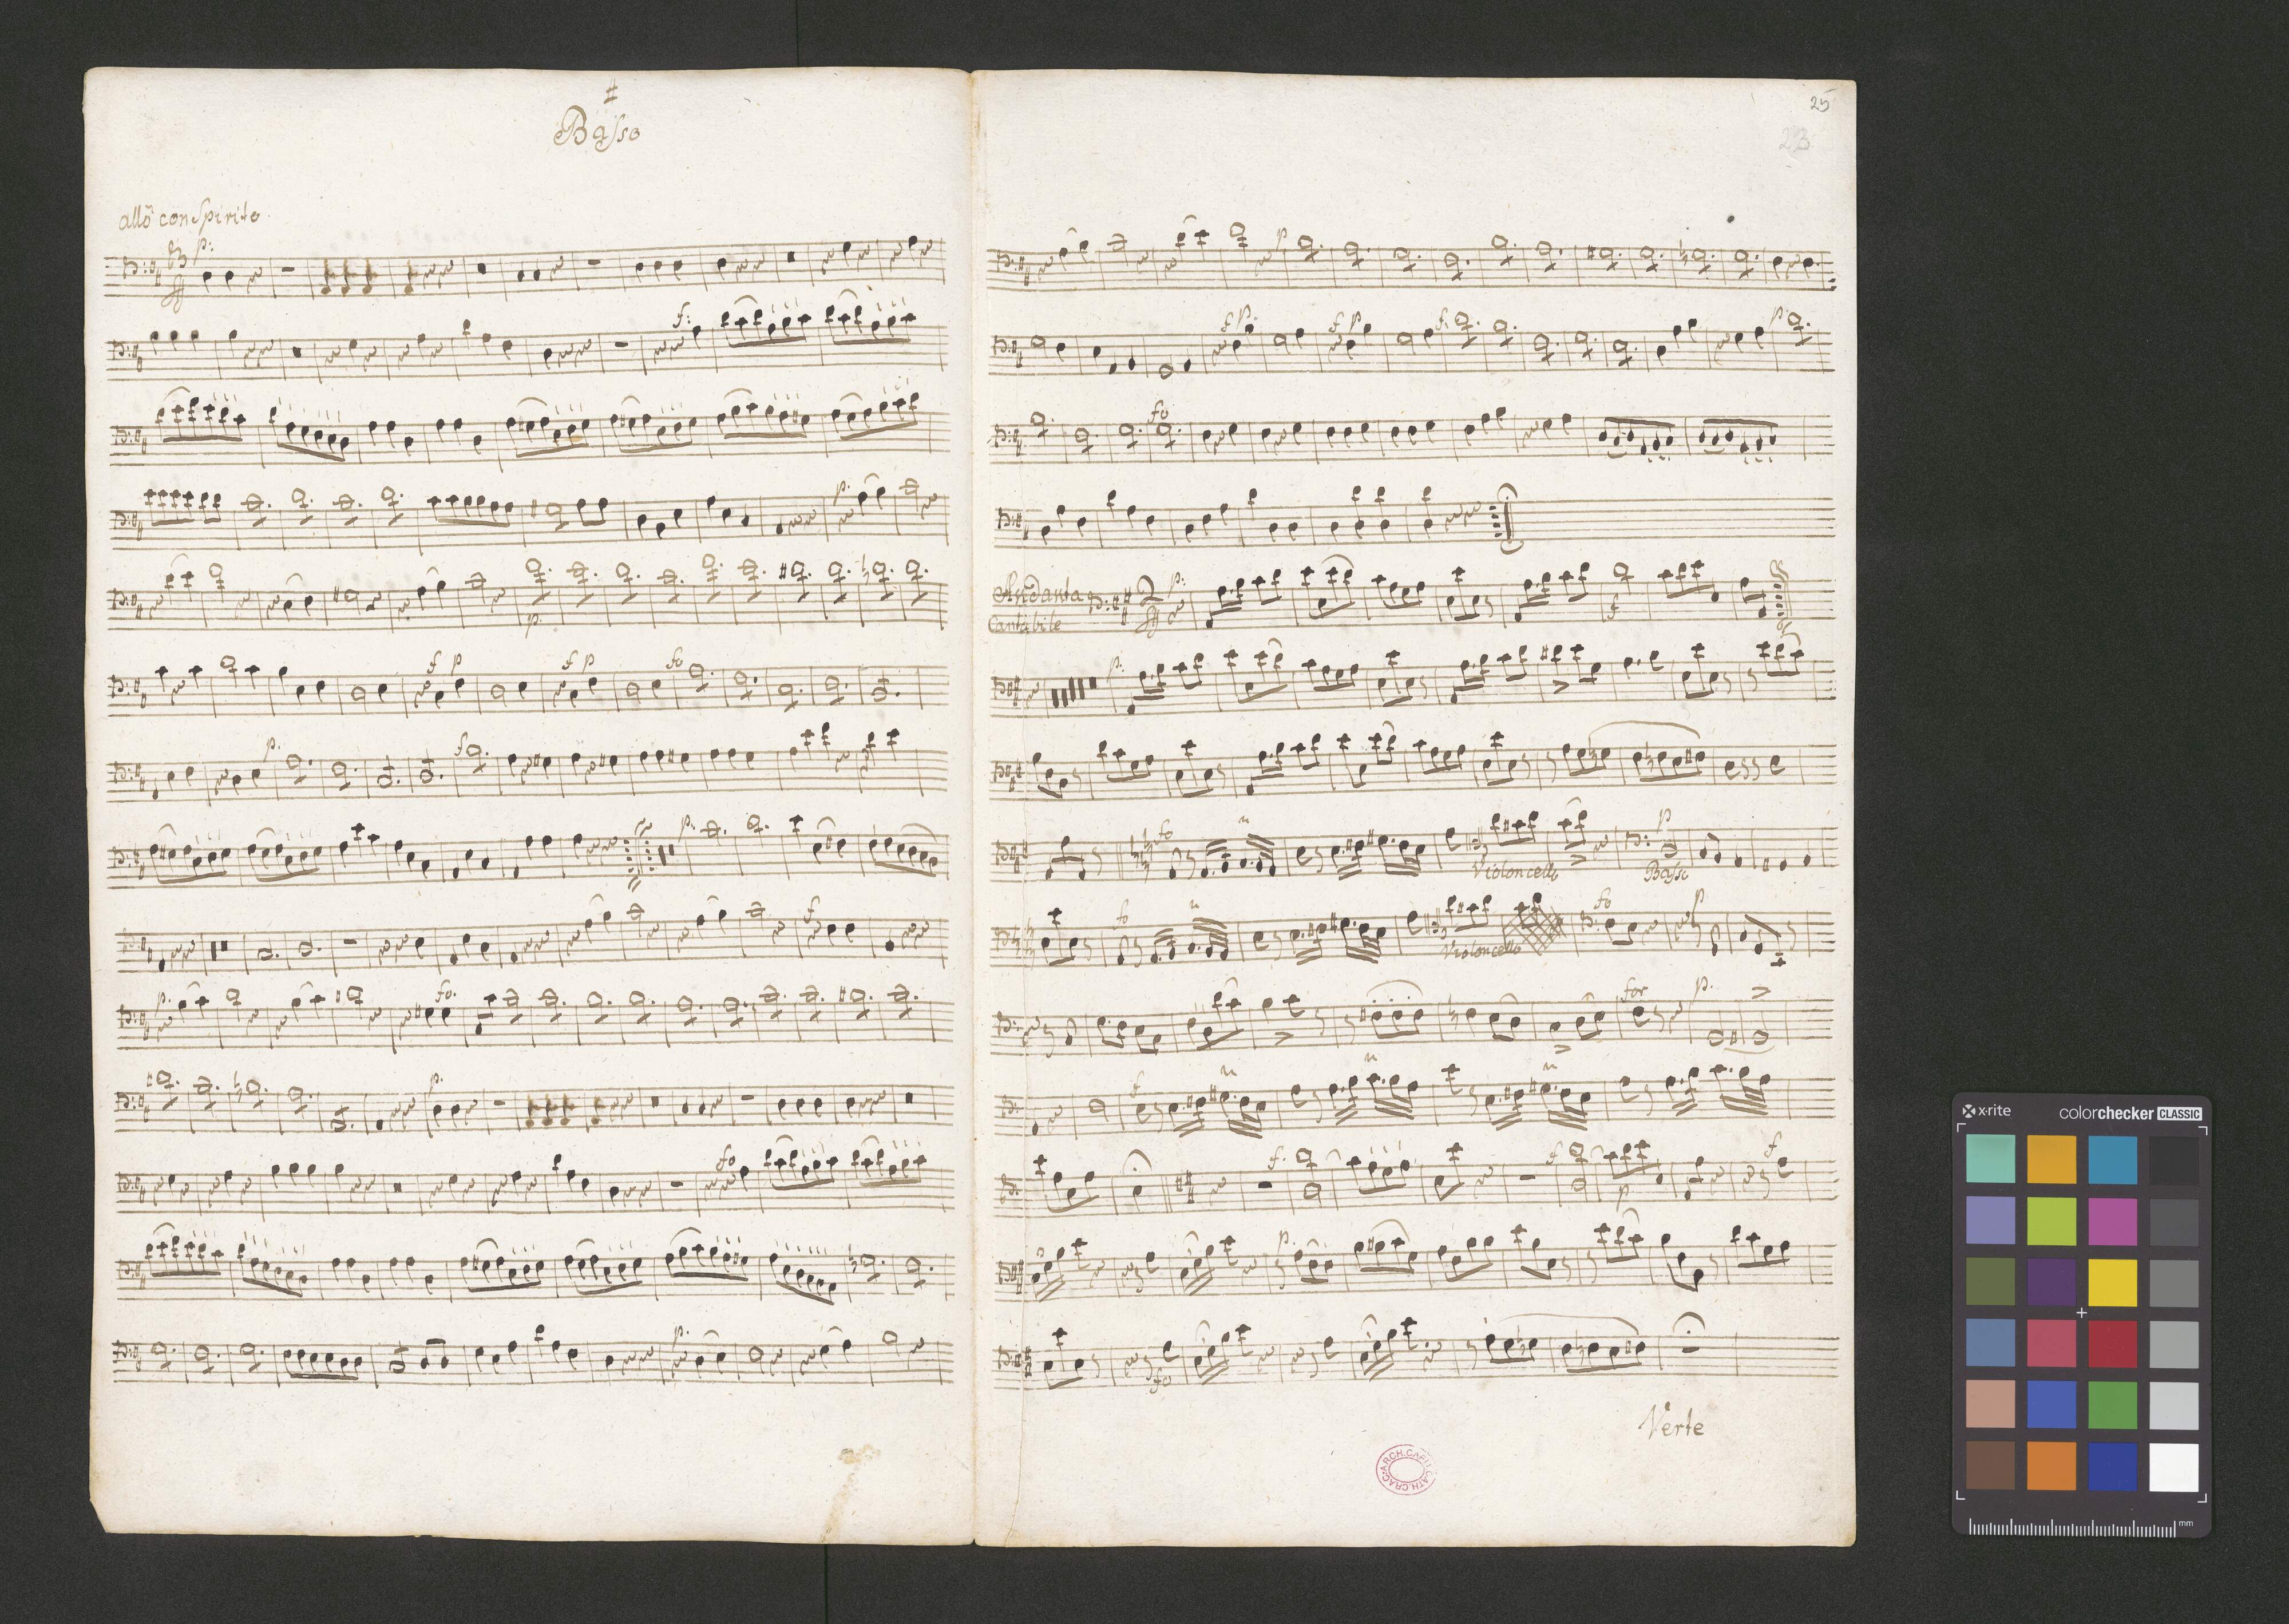 #
Basso
allo con Spirito
p:
f:
p:
p:
f p
f p
fo
p:
f
p:
f
p:
fo.
p:
fo
p:
25
23
p
f p:
f p
f:
p:
fo
Andante
Cantabile
2 p:
f
p:
fo
Violoncello
p
Basso
fo
Violoncello
fo
p
for
p:
f
f:
f
p
f
p:
fo
Verte
ARCH. CAPIT. CATH. CRAC.
x-rite
colorchecker CLASSIC
mm